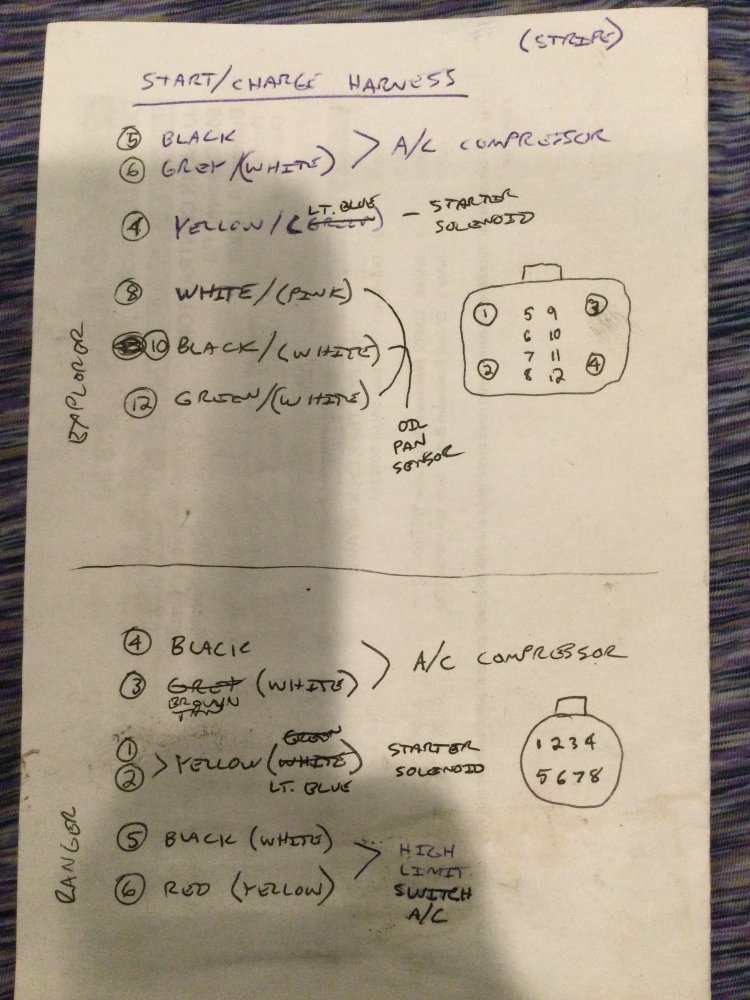 (STRIPE)
START/CHARGE HARNESS
5 BLACK
6 GREY/(WHITE) > A/C COMPRESSOR
4 YELLOW/(GREEN) LT. BLUE - STARTER
SOLENOID
8 WHITE/(PINK)
10 BLACK/(WHITE)
12 GREEN/(WHITE)
OIL
PAN
SENSOR
EXPLORER
1 5 9 3
6 10
2 7 11 4
8 12
4 BLACK
3 GREY (WHITE) > A/C COMPRESSOR
BROWN
TAN
GREEN
1
2 > YELLOW (WHITE) STARTER
LT. BLUE SOLENOID
1 2 3 4
5 6 7 8
5 BLACK (WHITE)
6 RED (YELLOW) > HIGH
LIMIT
SWITCH
A/C
RANGER